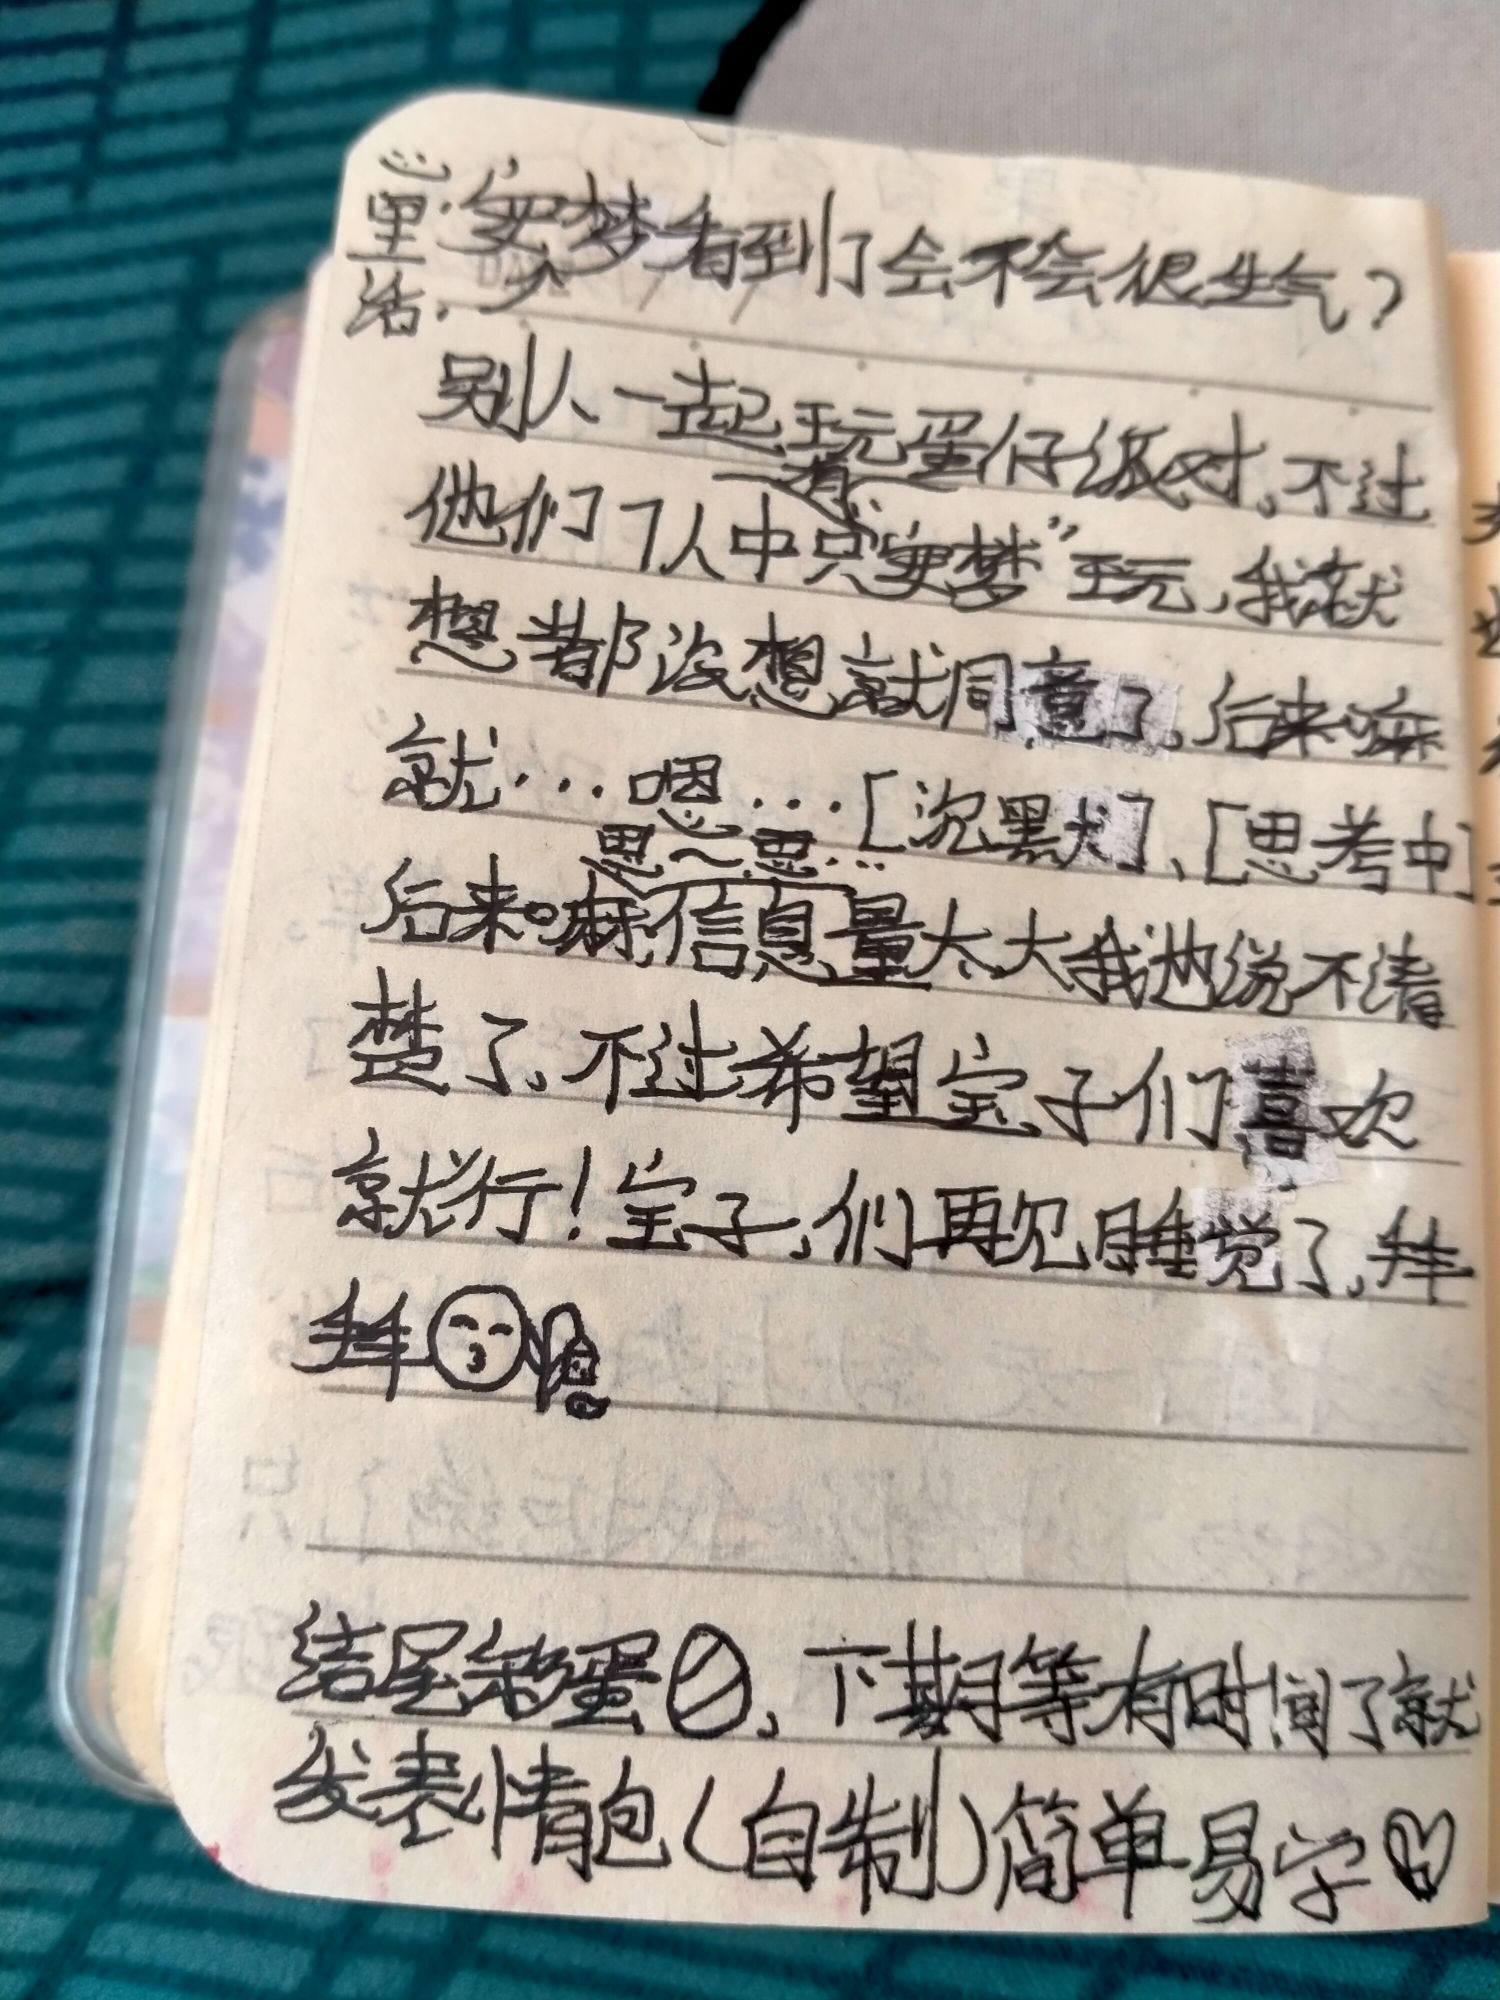 心里话:安梦看到了会不会很生气?
别人一起玩蛋仔派对,不过
有
他们7人中只"安梦"玩,我就
想都没想就同意了,后来嘛
就…嗯…[沉默]、[思考中]
思~思…
后来嘛,信息量太大我也说不清
楚了,不过希望宝子们喜欢
就行!宝子,们再见睡觉了,拜
拜
结尾彩蛋,下期等有时间了就
发表情包(自制)简单易学